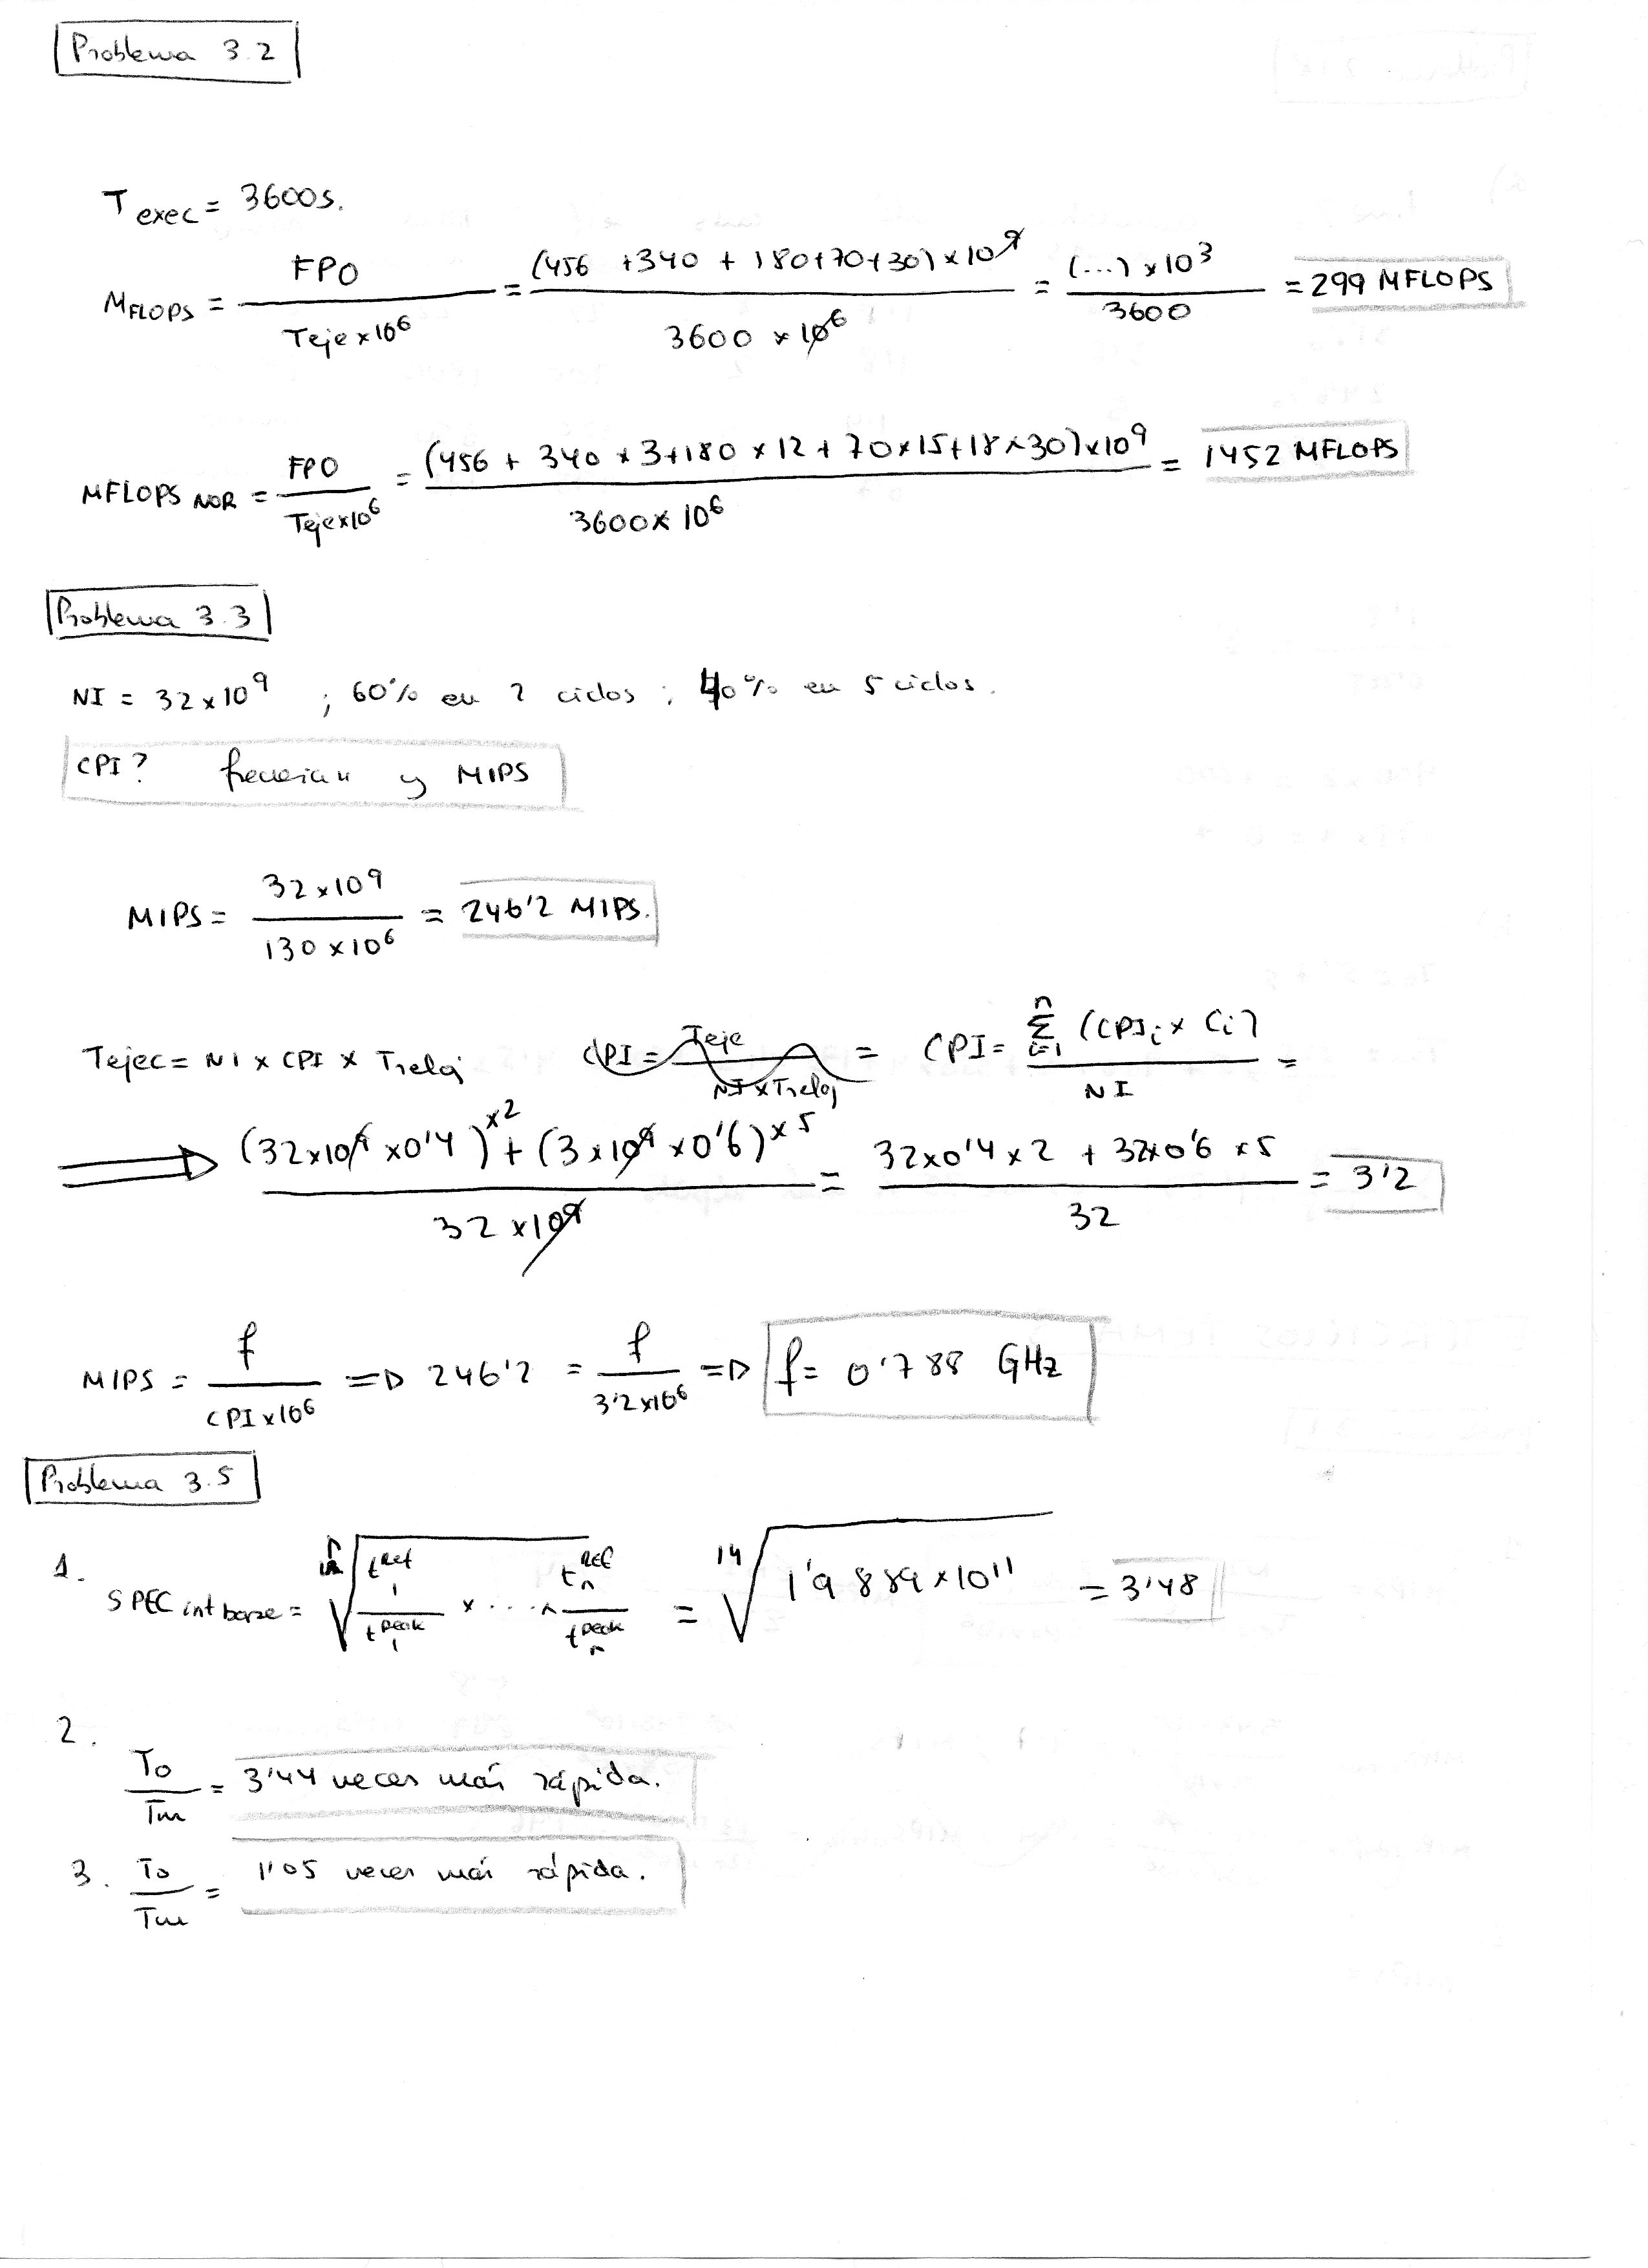 Problema 3.2
T exec = 3600s.
MFLOPS = FPO / Teje x 10^6 = (456 + 340 + 180 + 70 + 30) x 10^9 / 3600 x 10^6 = (...) x 10^3 / 3600 = 299 MFLOPS
MFLOPS NOR = FPO / Teje x 10^6 = (456 + 340 x 3 + 180 x 12 + 70 x 15 + 18 x 30) x 10^9 / 3600 x 10^6 = 1452 MFLOPS
Problema 3.3
NI = 32 x 10^9 ; 60% en 2 ciclos ; 40% en 5 ciclos.
CPI? y MIPS
MIPS = 32 x 10^9 / 130 x 10^6 = 246'2 MIPS.
Tejec = NI x CPI x Treloj CPI = Teje / NI x Treloj = CPI = Σ i=1 n (CPIi x Ci) / NI =
=> (32 x 10^9 x 0'4) x 2 + (3 x 10^9 x 0'6) x 5 / 32 x 10^9 = 32 x 0'4 x 2 + 32 x 0'6 x 5 / 32 = 3'2
MIPS = f / CPI x 10^6 => 246'2 = f / 3'2 x 10^6 => f = 0'788 GHz
Problema 3.5
1. SPEC int base = n√ t1^Ref / t1^peak x ... x tn^REF / tn^peak = 14√ 1'9889 x 10^11 = 3'48
2. To / Tm = 3'44 veces más rápida.
3. To / Tm = 1'05 veces más rápida.